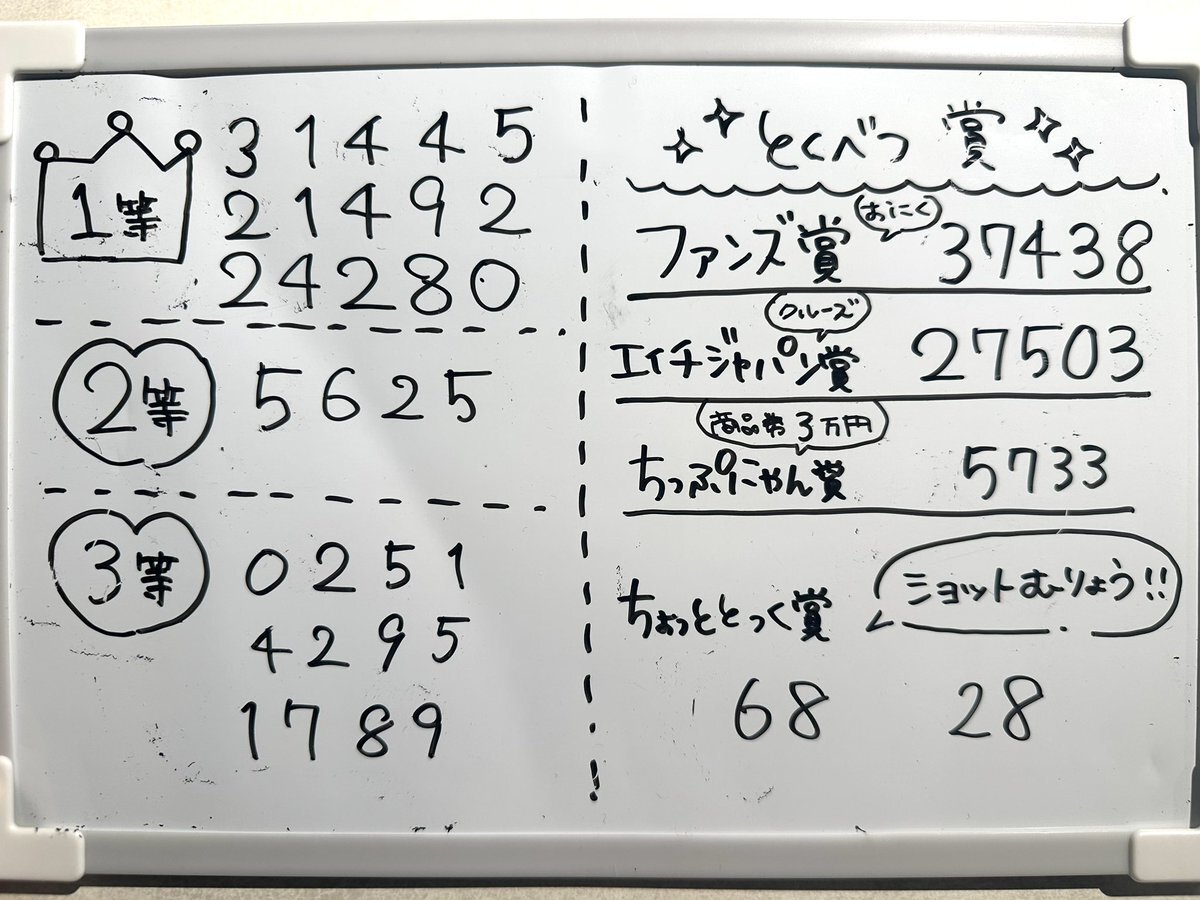 1等
31445
21492
24280
2等
5625
3等
0251
4295
1789
とくべつ賞
おにく
ファンズ賞 37438
クルーズ
エイチジャパン賞 27503
商品券3万円
ちっぷにゃん賞 5733
ショットむりょう!!
ちょっととっく賞
68 28